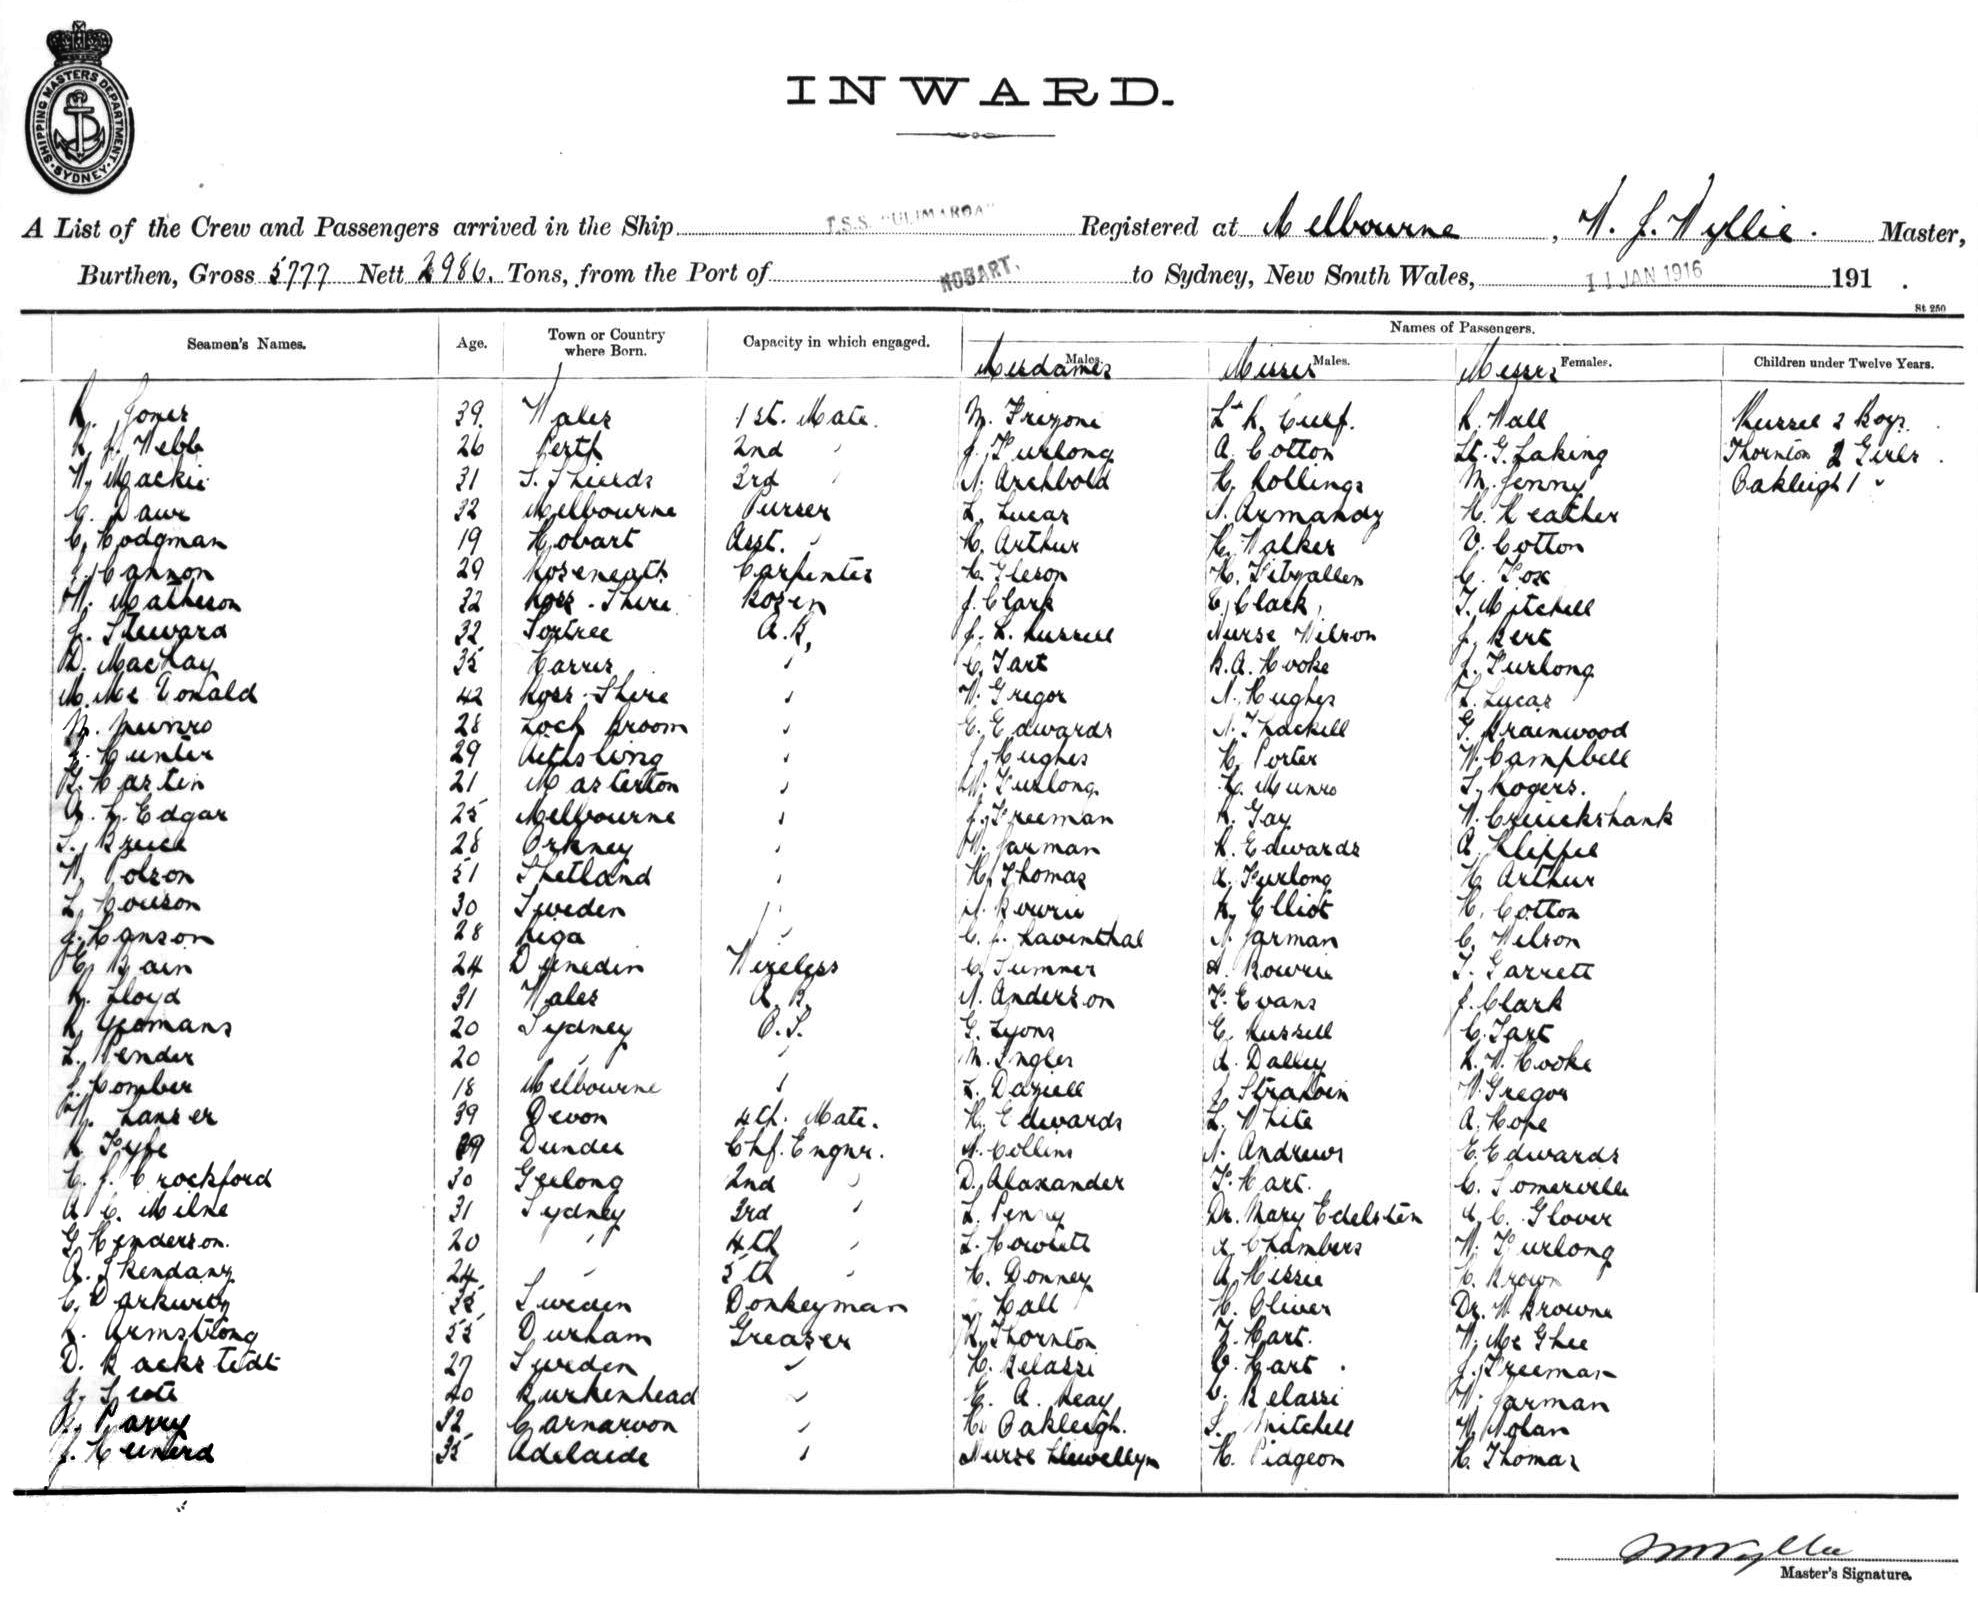 SHIPPING MASTERS DEPARTMENT · SYDNEY ·
INWARD.
A List of the Crew and Passengers arrived in the Ship T.S.S. "ULIMAROA" Registered at Melbourne, W. J. Wyllie. Master,
Burthen, Gross 5777 Nett 2986. Tons, from the Port of HOBART. to Sydney, New South Wales, 11 JAN 1916 191 .
St 250
Seamen's Names. Age. Town or Country where Born. Capacity in which engaged. Names of Passengers.
Mesdames Males. Misses Males. Messrs Females. Children under Twelve Years.
R. Jones 39. Wales 1st. Mate. M. Frizoni Lt R. Cuff. R. Wall Russel 2 Boys.
R. J. Webb 26 Perth 2nd " J. Furlong A. Cotton Lt. G. Laking Thornton 2 Girls.
W. Mackie 31 S. Shields 3rd " N. Archbold H. Collings M. Jenny Oakleigh 1 "
C. Dawe 32 Melbourne Purser L. Lucas N. Armandy H. Heather
C. Hodgman 19 Hobart Asst. " H. Arthur H. Walker V. Cotton
Cannon 29 Roseneath Carpenter H. Gleson H. Fitzallen C. Fox
W. Matheson 32 Ross-Shire Bosen J. Clark C. Clark T. Mitchell
J. Steward 32 Portree A.B. J. L. Russell Nurse Wilson J. Bert
D. MacKay 35 Harris " C. Tart B. A. Hooke J. Furlong
M. McDonald 42 Ross-Shire " W. Gregor N. Hughes L. Lucas
M. Munro 28 Loch Broom " E. Edwards N. Thackell G. Brainwood
Hunter 29 " J. Hughes H. Porter W. Campbell
B. Hartin 21 Masterton " W. Furlong Munro S. Rogers.
A. L. Edgar 25 Melbourne " J. Freeman R. Gay W. Cruickshank
S. Bruce 28 Orkney " W. Jarman R. Edwards A. Klippel
W. Polson 51 Shetland " H. Thomas A. Furlong H. Arthur
L. Houson 30 Sweden " N. Bowrie R. Elliot H. Cotton
J. Hanson 28 Riga " C. J. Laventhal N. Jarman C. Wilson
E. Bain 24 Dunedin Wireless C. Sumner A. Bowrie T. Garrett
R. Lloyd 31 Wales A.B. N. Anderson F. Evans J. Clark
R. Yeomans 20 Sydney O.S. G. Lyons E. Russell C. Tart
L. Pender 20 " " M. Ingles A. Dalley R. W. Hooke
Comber 18 Melbourne " L. Daziell Strahoin W. Gregor
W. Lanser 39 Devon 4th. Mate. H. Edwards L. White A. Hope
R. Fyfe Dundee Chf. Engnr. N. Collins N. Andrews E. Edwards
C. J. Crockford 30 Geelong 2nd " D. Alaxander F. Hart. C. Somerville
A. C. Milne 31 Sydney 3rd " L. Penny Dr. Mary Edelsten C. Glover
G. Henderson. 20 " 4th " L. Howitt Chambers W. Furlong
A. Skendany 24 " 5th " H. Donney A. Hissie C. Brown
C. Darkurdy 35 Sweden Donkeyman Hall H. Oliver Dr. W. Browne
R. Armstrong 55 Durham Greaser R. Thornton Hart. W. McGhee
D. Backstedt 27 Sweden " H. Belassi C. Hart. J. Freeman
J. Leote 40 Burkenhead " E. A. Reay C. Belassi W. Jarman
Parry 32 Carnarvon " H. Oakleigh. S. Mitchell W. Nolan
J. 35 Adelaide " Nurse Llewellyn H. Pidgeon H. Thomas
WJWyllie
Master's Signature.